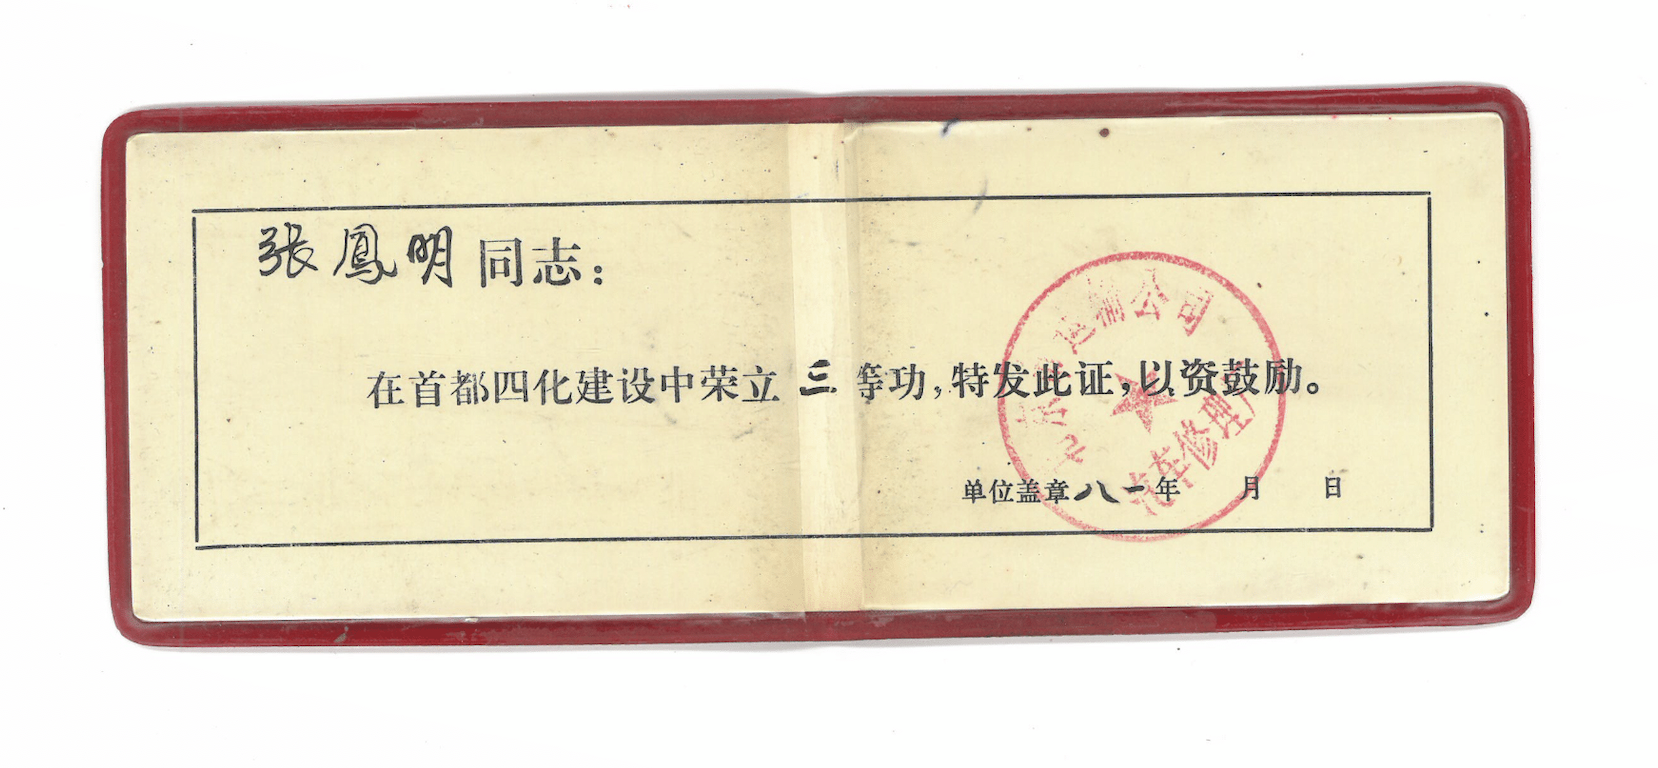 张鳳明同志：
在首都四化建设中荣立三等功，特发此证，以资鼓励。
单位盖章八一年 月 日
运输公司
汽车修理厂